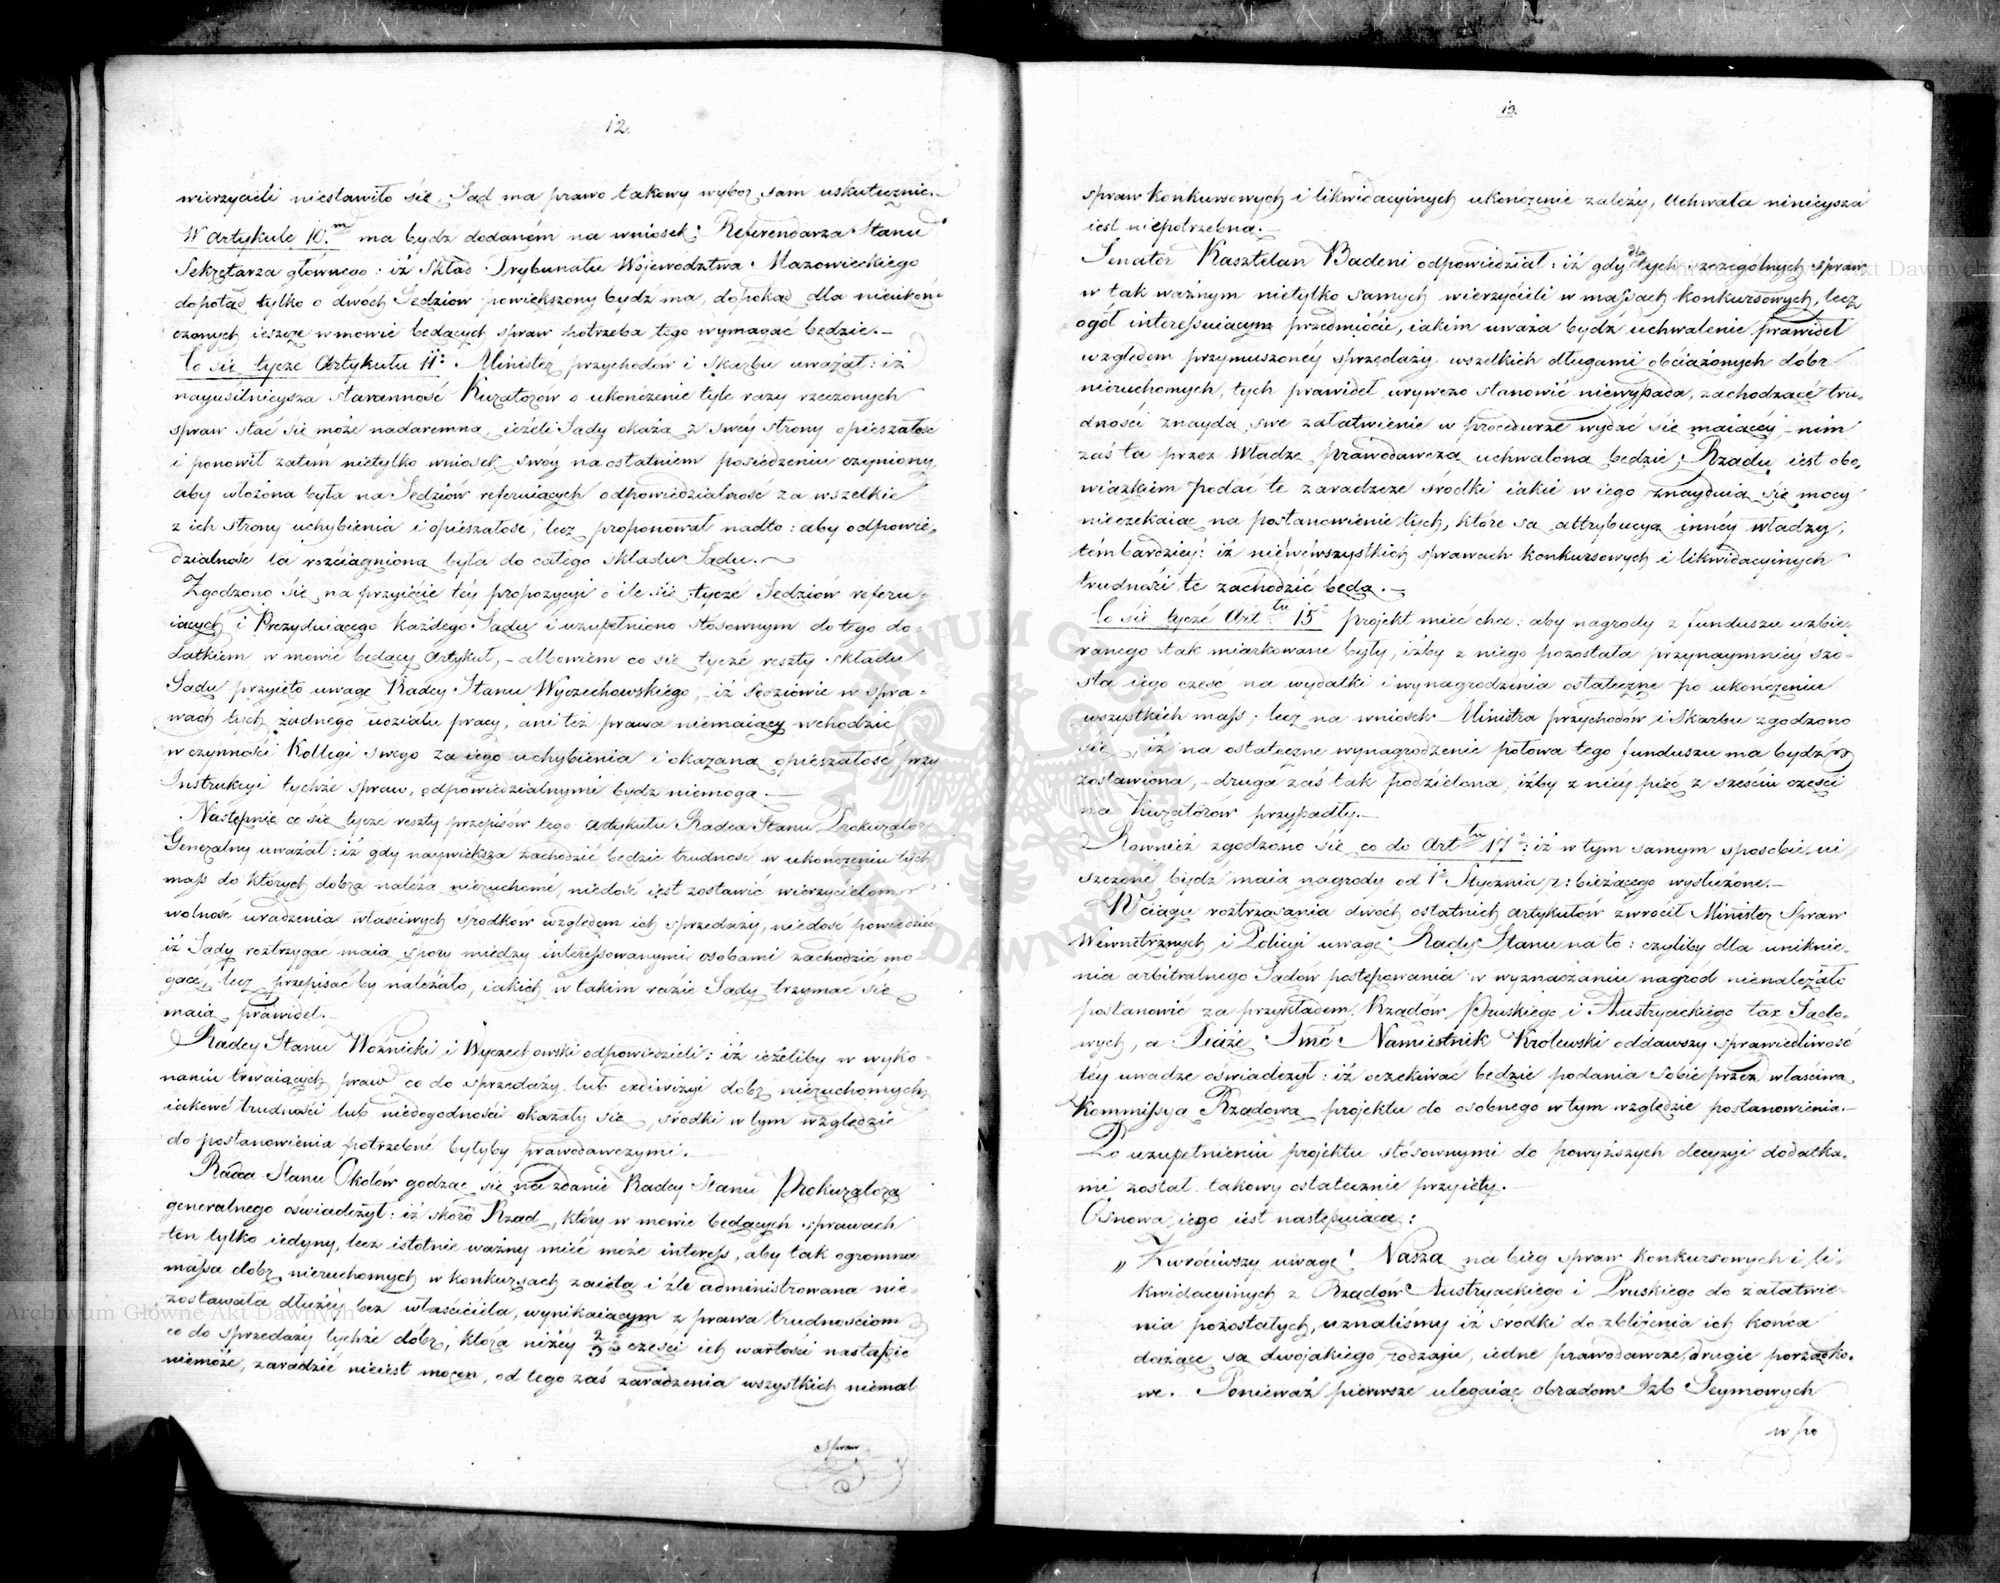 12.
wierzycieli niestawiło się, Sąd ma prawo takowy wybor sam uskutecznić.
W artykule 10.m ma bydź dodaném na wniosek: Referendarza Stanu
Sekretarza głownego: iż Skład Trybunału Woiewodztwa Mazowieckiego
dopotąd tylko o dwóch Sędziów powiększony bydź ma, dopokąd dla nieukoń-
czonych ieszcze w mowie będących spraw potrzeba tego wymagać będzie.—
Co się tycze Artykułu 11o Minister przychodów i Skarbu uważał: iż
nayusilnieysza staranność Kuratorów o ukończenie tyle razy rzeczonych
spraw stać się może nadaremną, ieżeli Sądy okażą z swéy strony opieszałość
i ponowił zatém nietylko wniosek swoy na ostatniem posiedzeniu czyniony
aby włożona była na Sędziów referuiących odpowiedzialność za wszelkie
z ich strony uchybienia i opieszałość, lecz proponował nadto: aby odpowie-
dzialność ta rozciągniona była do całego składu Sądu.—
Zgodzono się na przyięcie téy propozycyi o ile się tycze Sędziów referu-
iących i Prezyduiącego każdego Sądu i uzupełniono stosownym do tego do-
datkiem w mowie będący Artykuł,— albowiem co się tycze reszty składu
Sądu przyięto uwagę Radcy Stanu Wyczechowskiego, iż Sędziowie w spra-
wach tych żadnego udziału pracy, ani też prawa niemaiący wchodzić
w czynności Kollegi swego za iego uchybienia i okazaną opieszałość przy
Instrukcyi tychże spraw, odpowiedzialnymi bydź niemogą.—
Następnie co się tycze reszty przepisów tego artykułu Radca Stanu Prokurator
Generalny uważał: iż gdy naywiększa zachodzić będzie trudność w ukończeniu tych
mass do których dobra należą nieruchomé, niedość iest zostawić wierzycielom
wolność uradzenia właściwych srodków względem ich sprzedaży, niedość powiedzieć
iż Sądy roztrzygać maią spory między interessowanymi osobami zachodzić mo-
gące, lecz przepisać by należało, iakich w takim razie Sądy trzymać się
maią prawideł.—
Radcy Stanu Woźnicki i Wyczechowski odpowiedzieli: iż ieżeliby w wyko-
naniu trwaiących praw co do sprzedaży lub exdiwizyi dobr nieruchomych
iakowé trudności lub niedogodności okazały się, srodki w tym względzie
do postanowienia potrzebné byłyby prawodawczymi.—
Radca Stanu Okołów godząc się na zdanie Radcy Stanu Prokuratora
generalnego oświadczył: iż skoro Rząd, który w mowie będących sprawach
ten tylko iedyny, lecz istotnie ważny mieć może interess, aby tak ogromna
massa dobr nieruchomych w konkursach zaięta i źle administrowana nie-
zostawała dłużéy bez właściciela, wynikaiącym z prawa trudnościom
co do sprzedaży tychże dóbr, ktora niżéy 2/3 części ich wartości nastąpić
niemoże, zaradzić nieiest mocen, od tego zaś zaradzenia wszystkich niemal
spraw
13.
spraw konkursowych i likwidacyinych ukończenie zależy, Uchwała ninieysza
iest niepotrzebną.—
Senator Kasztelan Badeni odpowiedział: iż gdy dla tych szczególnych spraw
w tak ważnym nietylko samych wierzycieli w massach konkursowych, lecz
ogół interessuiącym przedmiocie, iakim uważa bydź uchwalenie prawideł
względem przymuszonéy sprzedaży wszelkich długami obciążonych dóbr
nieruchomych, tych prawideł urywczo stanowić niewypada, zachodzące tru-
dności znaydą swe załatwienie w procedurze wydać się maiącéy,— nim
zaś ta przez Władzę prawodawczą uchwaloną będzie, Rządu iest obo-
wiązkiem podać te zaradcze srodki iakie w iego znayduią się mocy
nieczekaiąc na postanowienie tych, które są attrybucyą innéy władzy,
tém bardziéy: iż nie we wszystkich sprawach konkursowych i likwidacyinych
trudności te zachodzić będą.—
Co się tycze Art.tu 15o projekt mieć chce: aby nagrody z funduszu uzbie-
ranego tak miarkowane były, iżby z niego pozostała przynaymniéy szo-
sta iego część na wydatki i wynagrodzenia ostateczne po ukończeniu
wszystkich mass; lecz na wniosek Ministra przychodów i Skarbu zgodzono
się, iż na ostateczne wynagrodzenie połowa tego funduszu ma bydź
zostawiona,— druga zaś tak podzielona, iżby z niey pięć z sześciu części
na Kuratorów przypadły.—
Również zgodzono się co do Art.tu 17o: iż w tym samym sposobie ui
szczoné bydź maią nagrody od 1o Stycznia r: bieżącego wysłużone.—
W ciągu roztrząsania dwóch ostatnich artykułów zwrócił Minister Spraw
Wewnętrznych i Policyi uwagę Rady Stanu na to: czyliby dla uniknie-
nia arbitralnego Sądów postępowania w wyznaczaniu nagród nienależało
postanowić za przykładem Rządów Pruskiego i Austryackiego tax Sądo-
wych, a Xiąże Jmć Namiestnik Królewski oddawszy sprawiedliwość
téy uwadze oświadczył: iż oczekiwać będzie podania Sobie przez właściwą
Kommissyą Rządową projektu do osobnego w tym względzie postanowienia.—
Po uzupełnieniu projektu stósownymi do powyższych decyzyi dodatka-
mi został takowy ostatecznie przyięty.—
Osnowa iego iest następuiąca:
„Zwróciwszy uwagę Naszą na bieg spraw konkursowych i li-
kwidacyinych z Rządów Austryackiego i Pruskiego do załatwie-
nia pozostałych, uznaliśmy iż srodki do zbliżenia ich końca
dążące są dwoiakiego rodzaiu, iedne prawodawcze, drugie porządko-
we. Ponieważ pierwsze ulegaiąc obradom Izb Seymowych
w po
Archiwum Główne Akt Dawnych